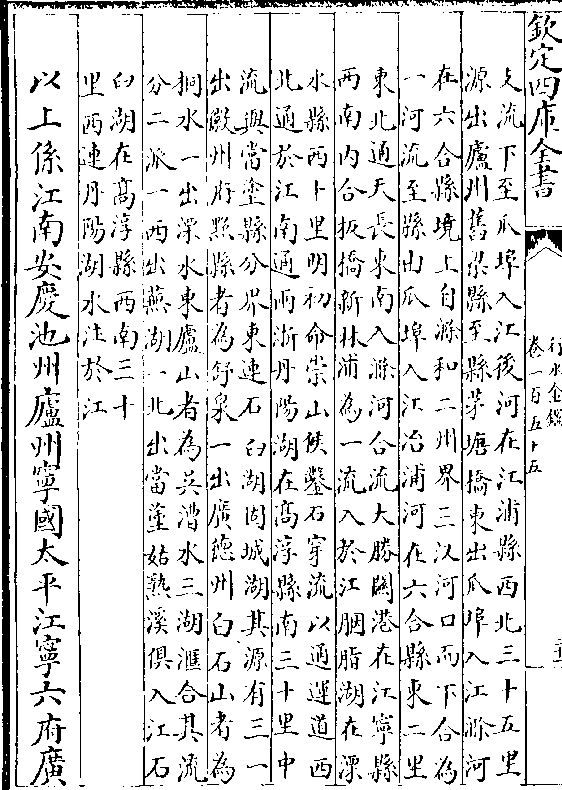 欽定四庫全書
行水金鑑
卷一百五十五
支流下至瓜埠入江後河在江浦縣西北三十五里
源出廬州舊梁縣至縣茅塘橋東出瓜埠入江滁河
在六合縣境上自滁和二州界三汊河口而下合為
一河流至縣由瓜埠入江冶浦河在六合縣東二里
東北通天長東南入滁河合流大勝闗港在江寧縣
西南内合板橋新林浦為一流入於江胭脂湖在溧
水縣西十里明初命崇山侯鑿石穿流以通運道西
北通於江南通兩浙丹陽湖在髙淳縣南三十里中
流與當塗縣分界東連石臼湖固城湖其源有三一
出徽州府黟縣者為舒泉一出廣德州白石山者為
桐水一出溧水東廬山者為吴漕水三湖滙合其流
分二派一西出蕪湖一北出當塗姑熟溪俱入江石
臼湖在髙淳縣西南三十
里西連丹陽湖水注於江
以上係江南安慶池州廬州寧國太平江寧六府廣